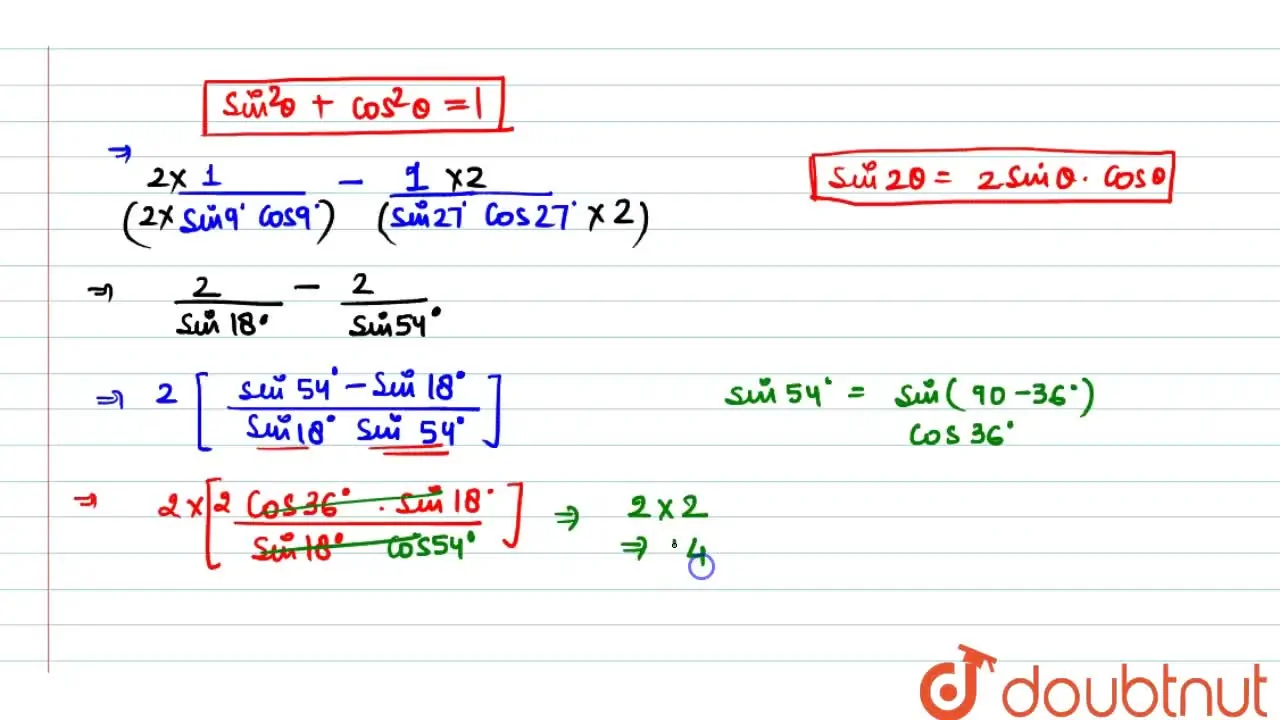 sin²θ + cos²θ = 1
⇒
2× 1 / (2× sin9° cos9°) − 1 ×2 / (sin27° cos27° × 2)
sin2θ = 2sinθ. cosθ
⇒ 2 / sin18° − 2 / sin54°
⇒ 2 [ sin54° − sin18° / sin18° sin 54° ]
sin54° = sin( 90 − 36°)
cos36°
⇒ 2× [ 2 cos36° . sin18° / sin18° cos54° ] ⇒ 2 × 2
⇒ 4
doubtnut